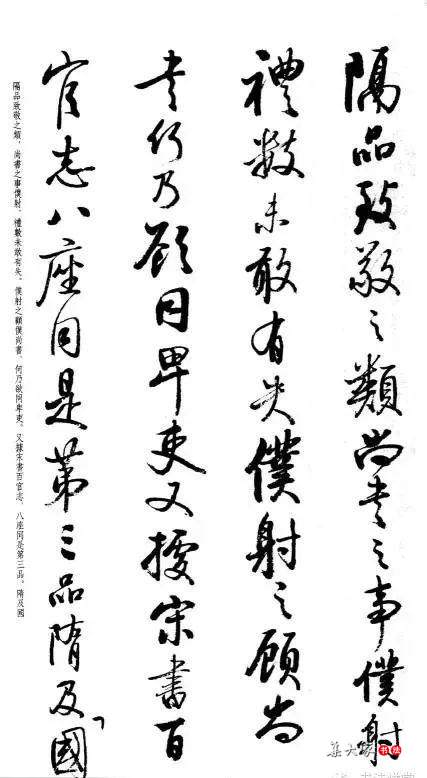 隔品致敬之類尚書之事僕射
禮數未敢有失僕射之顧尚
書何乃欲同卑吏又據宋書百
官志八座同是第三品隋及國
隔品致敬之類。尚書之事僕射,禮數未敢有失,僕射之顧僕尚書,何乃欲同卑吏。又據宋書百官志,八座同是第三品,隋及國
集大家 书法